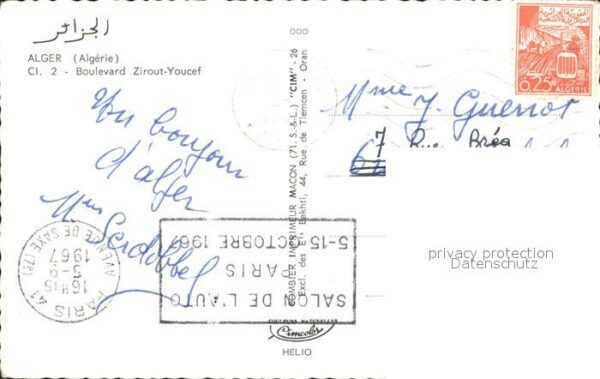 الجزائر
ALGER (Algérie)
Cl. 2 - Boulevard Zirout-Youcef
Un bonjour
d'alger
Mme
COMBIER IMPRIMEUR MACON (71. S.-&L.) "CIM" - 26
Excl. des Ets Bakhti, 44, Rue de Tlemcen - Oran
0,25
ALGERIE
Mme J. Guenot
7 R... Bréa
privacy protection
Datenschutz
PARIS 41
AVENUE DE SAXE (7E)
16H15
5-9
1967
SALON DE L'AUTO
PARIS
5-15 OCTOBRE 1967
COULEURS NATURELLES
Cimcolor
HÉLIO